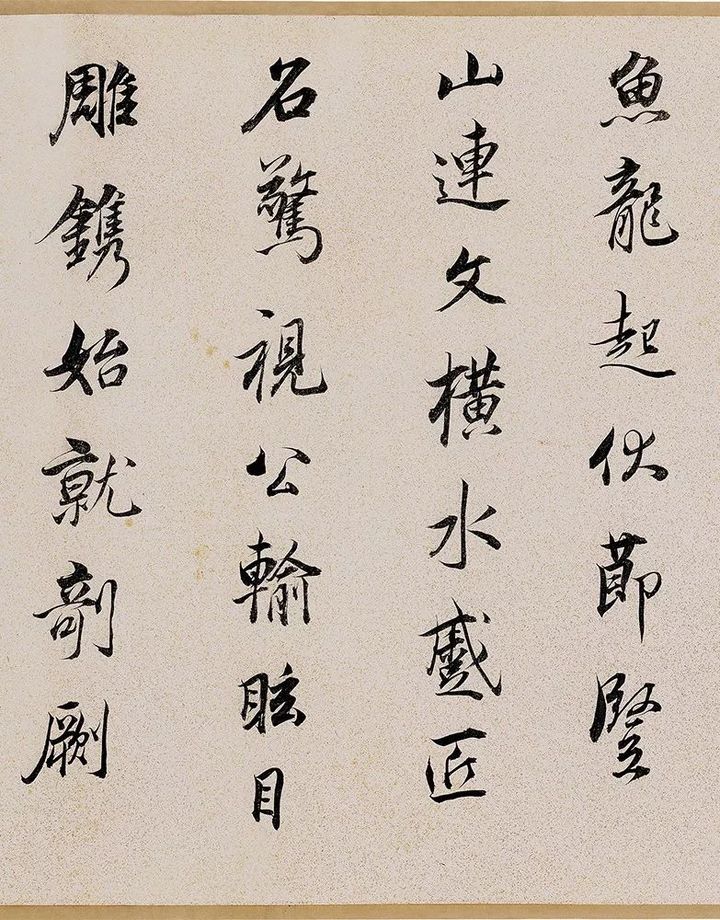 魚龍起伏節竪
山連文橫水蹙匠
石驚視公輸眩目
雕鐫始就剞劂